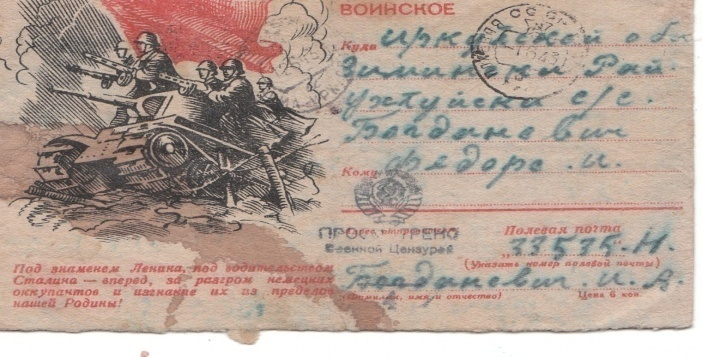 ВОИНСКОЕ
Куда Иркутской обл
Зиминский Рай
Ухтуйский с/с.
Богданович
Кому Федоре. И.
ПРОСМОТРЕНО
Военной Цензурой
Полевая почта
33535-Н.
(Указать номер полевой почты)
Богданович. И. А.
(Фамилия, имя и отчество) Цена 6 коп.
Под знаменем Ленина, под водительством
Сталина — вперед, за разгром немецких
оккупантов и изгнание их из пределов
нашей Родины!